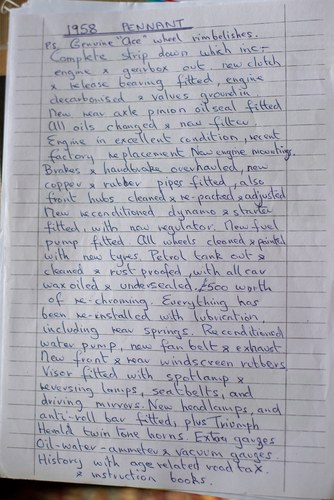 1958 PENNANT
Ps. Genuine "Ace" wheel rimbelishes.
Complete strip down which inc-
engine & gearbox out new clutch
& release bearing fitted, engine
decarbonised & valves groundin
New rear axle pinion oilseal fitted
All oils changed & new filter
Engine in excellent condition, recent
factory replacement New engine mountings,
Brakes & handbrake overhauled, new
copper & rubber pipes fitted, also
front hubs cleaned & re-packed & adjusted
New reconditioned dynamo & starter
fitted, with new regulator. New fuel
pump fitted. All wheels cleaned & painted
with new tyres. Petrol tank out &
cleaned & rust proofed, with all car
wax oiled & undersealed. £500 worth
of re-chroming. Everything has
been re-installed with lubrication,
including rear springs. Reconditioned
water pump, new fan belt & exhaust
New front & rear windscreen rubbers
Visor fitted with spotlamp &
reversing lamps, seatbelts, and
driving mirrors. New headlamps, and
anti-roll bar fitted, plus Triumph
Herald twin tone horns. Extra gauges
Oil-water-ammeter & vacuum gauges
History with age related road tax.
& instruction books.